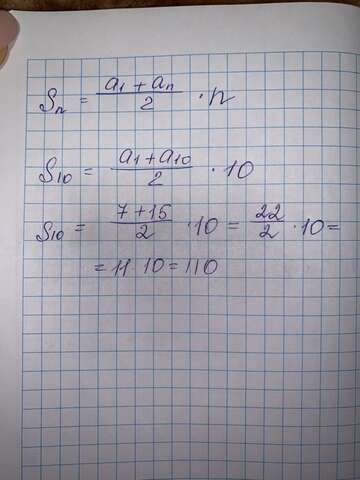 Sn = (a1 + an)/2 · n
S10 = (a1 + a10)/2 · 10
S10 = (7 + 15)/2 · 10 = 22/2 · 10 =
= 11 · 10 = 110